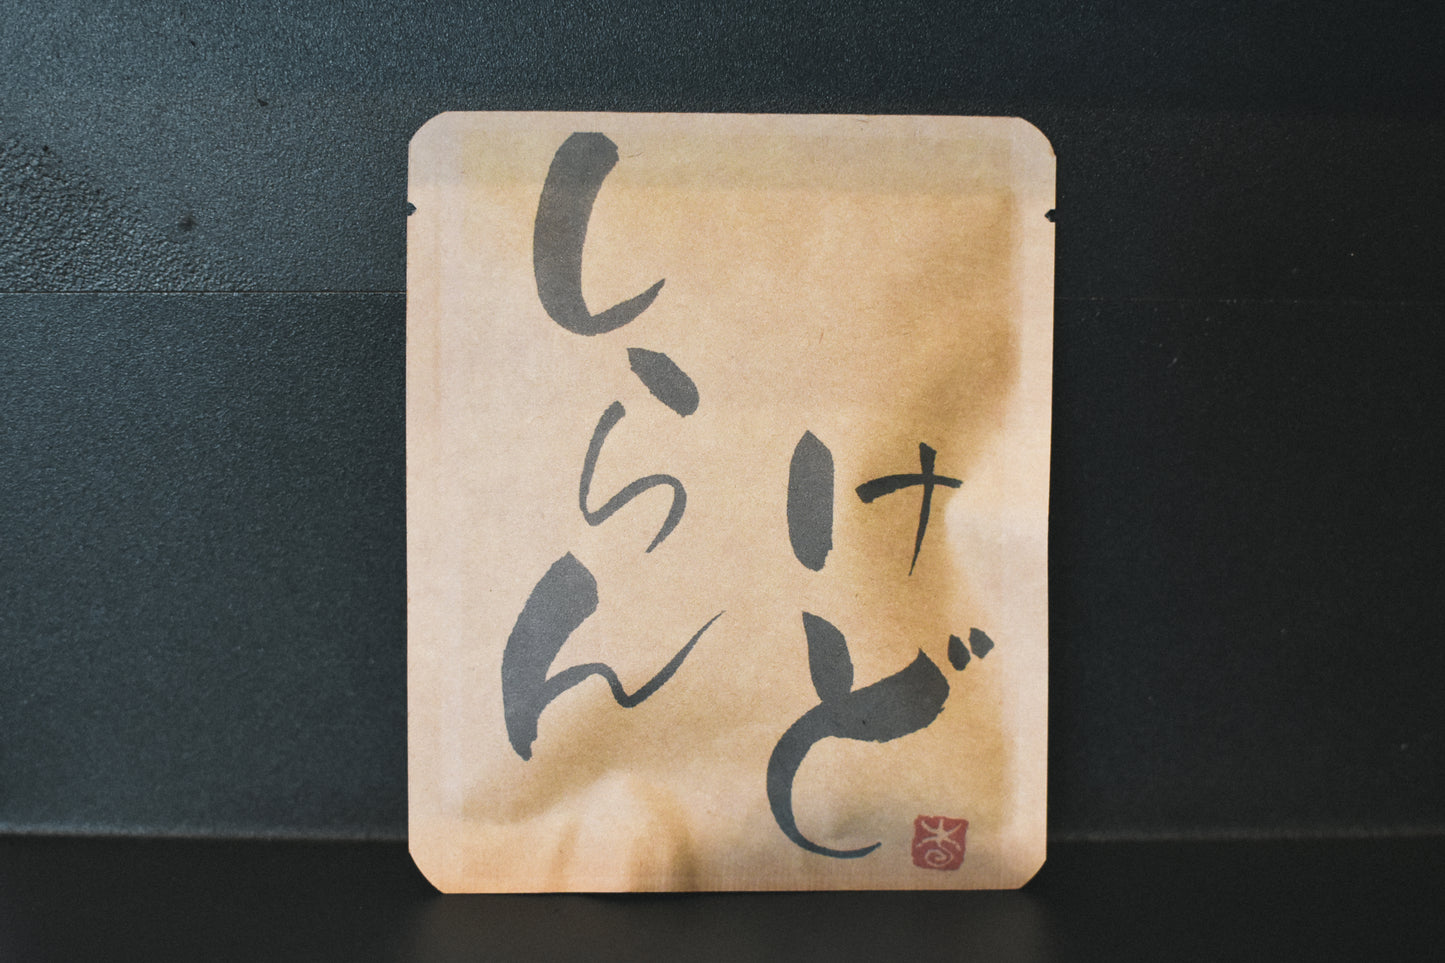 しらん
けど